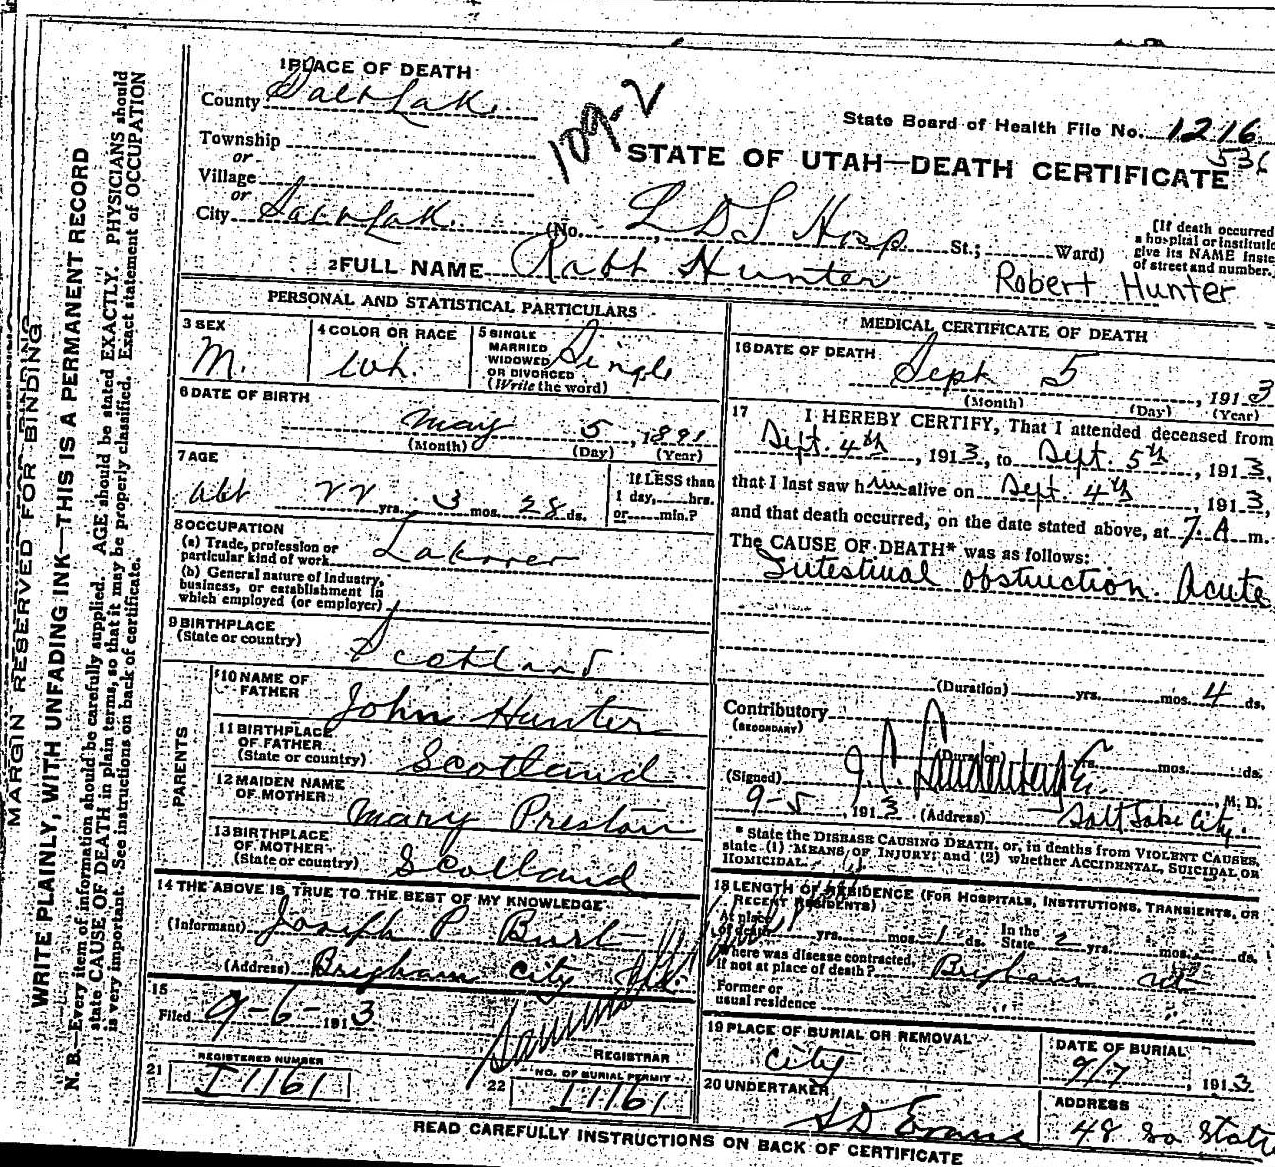 MARGIN RESERVED FOR BINDING
WRITE PLAINLY, WITH UNFADING INK—THIS IS A PERMANENT RECORD
N. B.—Every item of information should be carefully supplied. AGE should be stated EXACTLY. PHYSICIANS should
state CAUSE OF DEATH in plain terms, so that it may be properly classified. Exact statement of OCCUPATION
is very important. See instructions on back of certificate.
1 PLACE OF DEATH
County Salt Lake
Township
or
Village
or
City Salt Lake
109-2
State Board of Health File No. 1216
536
STATE OF UTAH—DEATH CERTIFICATE
(No. L D S Hosp St.; Ward)
[If death occurred
a hospital or instituti
give its NAME inste
of street and number.
2 FULL NAME Robt Hunter Robert Hunter
PERSONAL AND STATISTICAL PARTICULARS
3 SEX
M.
4 COLOR OR RACE
Wh.
5 SINGLE
MARRIED
WIDOWED
OR DIVORCED
(Write the word)
Single
6 DATE OF BIRTH
May 5, 1891
(Month) (Day) (Year)
7 AGE
Abt 22 yrs. 3 mos. 28 ds.
If LESS than
1 day, hrs.
or min.?
8 OCCUPATION
(a) Trade, profession or
particular kind of work Laborer
(b) General nature of industry,
business, or establishment in
which employed (or employer)
9 BIRTHPLACE
(State or country) Scotland
PARENTS
10 NAME OF
FATHER John Hunter
11 BIRTHPLACE
OF FATHER
(State or country) Scotland
12 MAIDEN NAME
OF MOTHER Mary Preston
13 BIRTHPLACE
OF MOTHER
(State or country) Scotland
14 THE ABOVE IS TRUE TO THE BEST OF MY KNOWLEDGE
(Informant) Joseph P Burt
(Address) Brigham City Ut.
15
Filed 9-6- 1913
REGISTRAR
21 REGISTERED NUMBER
I 1161
22 NO. OF BURIAL PERMIT
I 1161
MEDICAL CERTIFICATE OF DEATH
16 DATE OF DEATH
Sept 5, 1913
(Month) (Day) (Year)
17 I HEREBY CERTIFY, That I attended deceased from
Sept. 4th, 1913, to Sept. 5th, 1913,
that I last saw him alive on Sept. 4th, 1913,
and that death occurred, on the date stated above, at 7 A m.
The CAUSE OF DEATH* was as follows:
Intestinal obstruction. Acute
(Duration) yrs. mos. 4 ds.
Contributory
(SECONDARY)
(Duration) yrs. mos. ds.
(Signed) J. C. M. D.
9-5, 1913 (Address) Salt Lake City.
* State the DISEASE CAUSING DEATH, or, in deaths from VIOLENT CAUSES,
state (1) MEANS OF INJURY; and (2) whether ACCIDENTAL, SUICIDAL OR
HOMICIDAL.
18 LENGTH OF RESIDENCE (FOR HOSPITALS, INSTITUTIONS, TRANSIENTS, OR
RECENT RESIDENTS)
At place
of death yrs. mos. 1 ds. In the
State 2 yrs. mos. ds.
Where was disease contracted,
if not at place of death? Brigham Ut
Former or
usual residence
19 PLACE OF BURIAL OR REMOVAL
City
DATE OF BURIAL
9/7, 1913
20 UNDERTAKER
S D Evans
ADDRESS
48 So State
READ CAREFULLY INSTRUCTIONS ON BACK OF CERTIFICATE